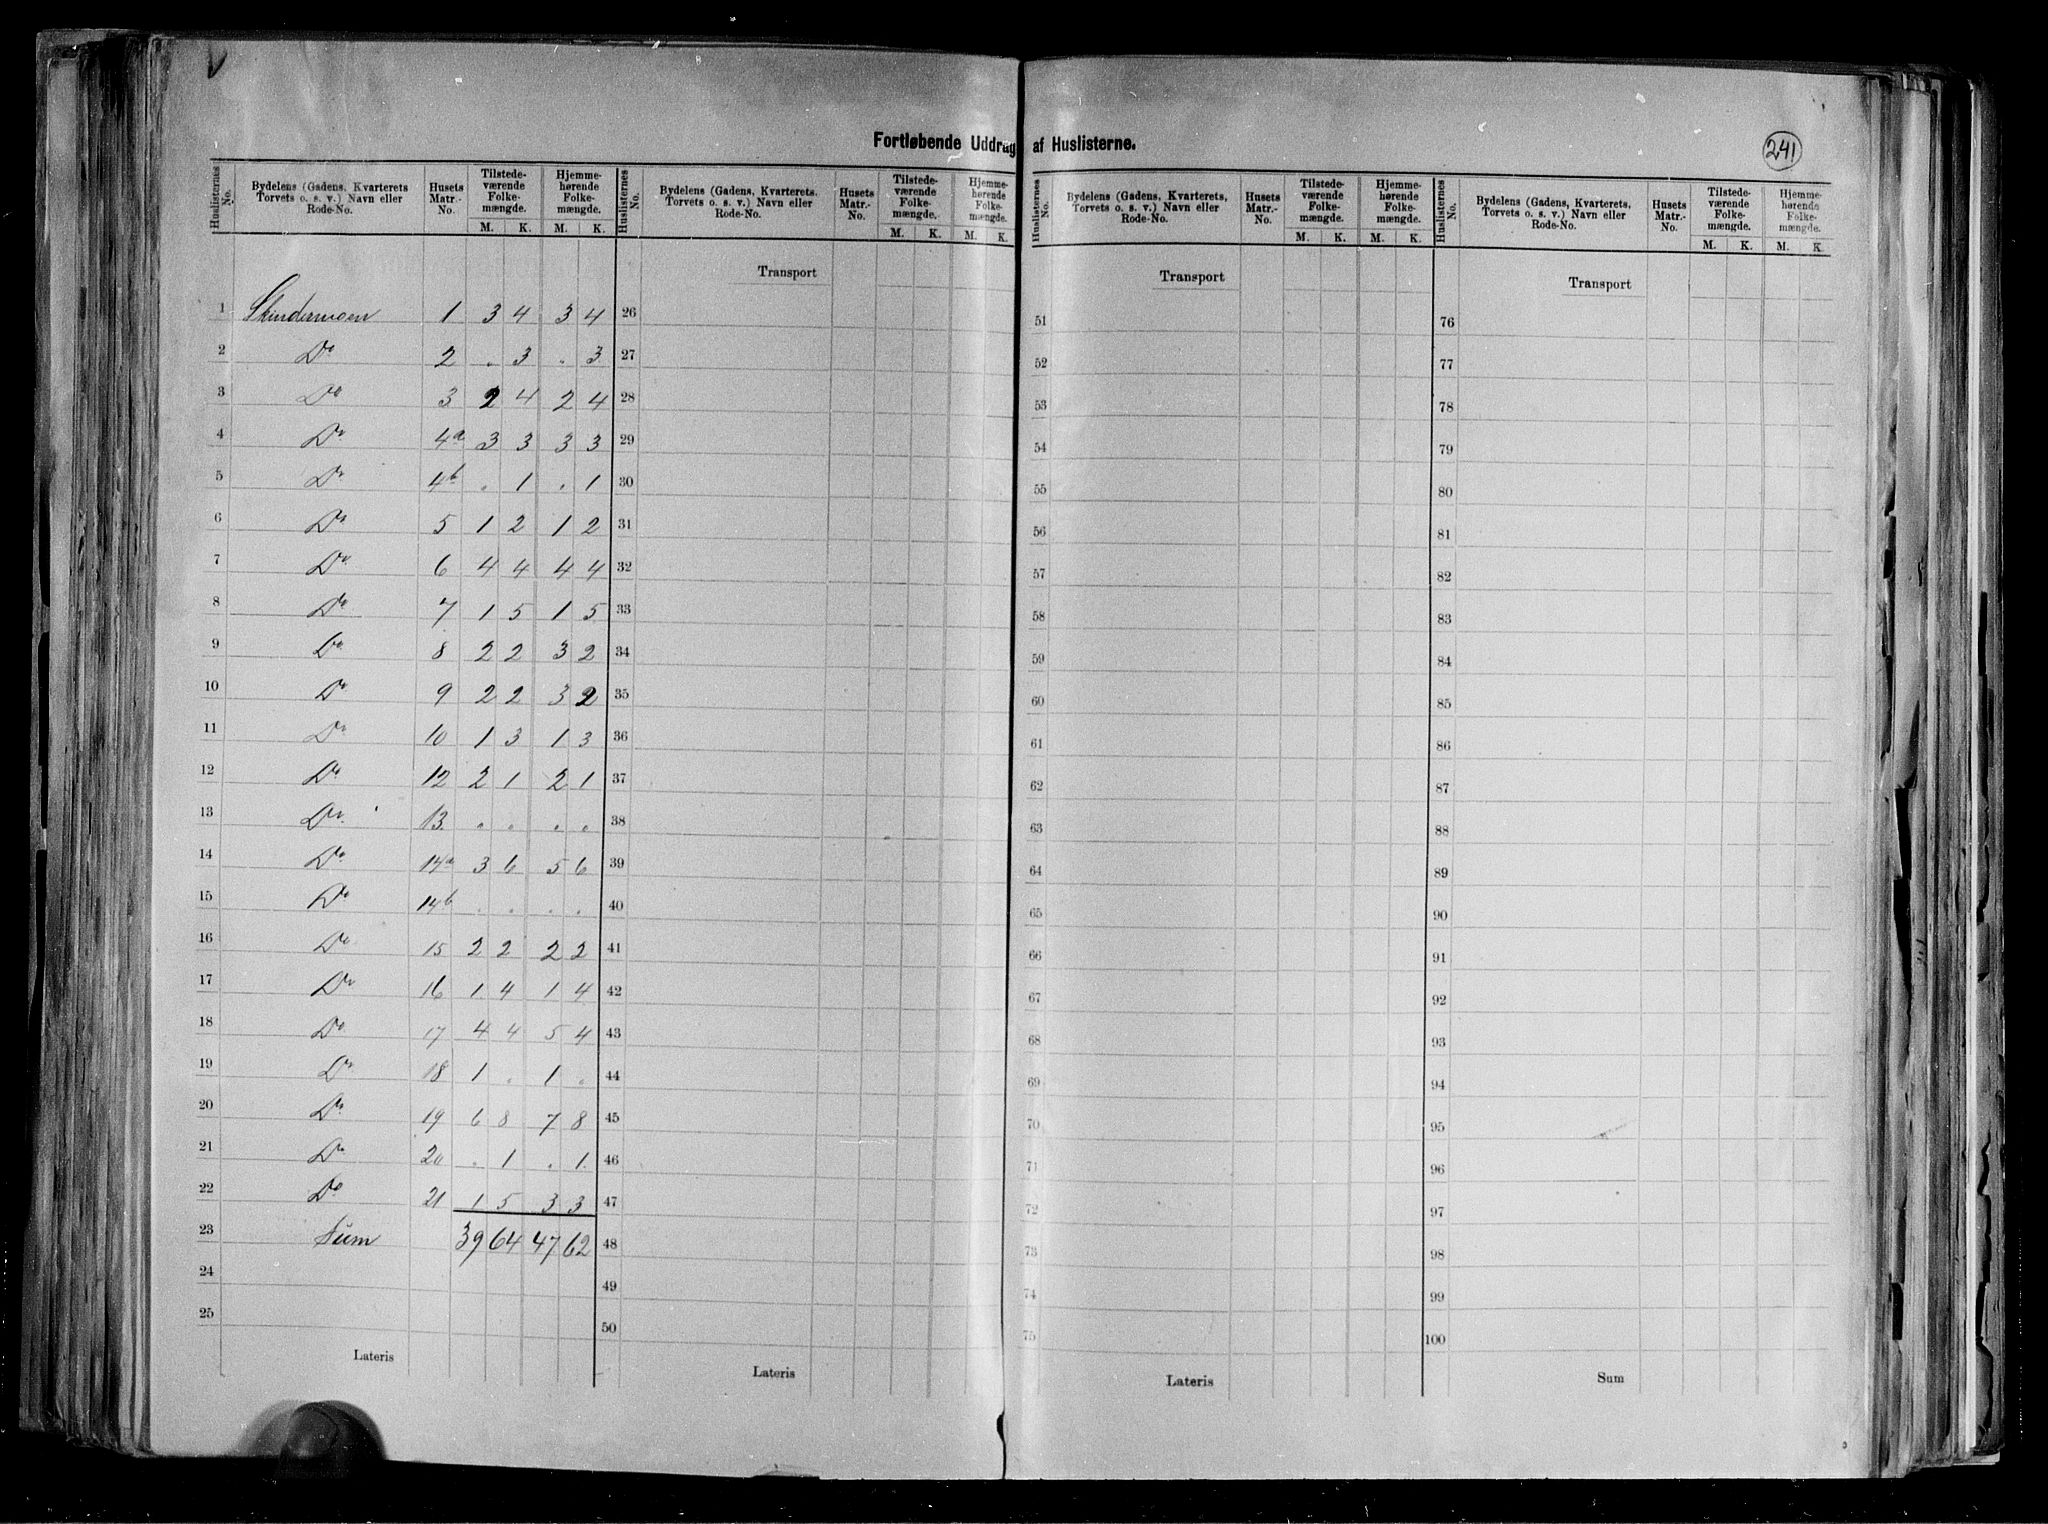 Fortløbende Uddrag af Huslisterne.
241
Huslisternes No. Bydelens (Gadens, Kvarterets Torvets o. s. v.) Navn eller Rode-No. Husets Matr.-No. Tilstedeværende Folkemængde. M. K. Hjemmehørende Folkemængde. M. K.
Huslisternes No. Bydelens (Gadens, Kvarterets. Torvets o. s. v.) Navn eller Rode-No. Husets Matr.-No. Tilstedeværende Folkemængde. M. K. Hjemmehørende Folkemængde. M. K.
Huslisternes No. Bydelens (Gadens, Kvarterets, Torvets o. s. v.) Navn eller Rode-No. Husets Matr.-No. Tilstedeværende Folkemængde. M. K. Hjemmehørende Folkemængde. M. K.
Huslisternes No. Bydelens (Gadens, Kvarterets, Torvets o. s. v.) Navn eller Rode-No. Husets Matr.-No. Tilstedeværende Folkemængde. M. K. Hjemmehørende Folkemængde. M. K.
1 Skindermoen 1 3 4 3 4
2 Do 2 . 3 . 3
3 Do 3 2 4 2 4
4 Do 4a 3 3 3 3
5 Do 4b . 1 . 1
6 Do 5 1 2 1 2
7 Do 6 4 4 4 4
8 Do 7 1 5 1 5
9 Do 8 2 2 3 2
10 Do 9 2 2 3 2
11 Do 10 1 3 1 3
12 Do 12 2 1 2 1
13 Do 13 . . . .
14 Do 14a 3 6 5 6
15 Do 14b . . . .
16 Do 15 2 2 2 2
17 Do 16 1 4 1 4
18 Do 17 4 4 5 4
19 Do 18 1 . 1 .
20 Do 19 6 8 7 8
21 Do 20 . 1 . 1
22 Do 21 1 5 3 3
23 Sum 39 64 47 62
24
25
Lateris
Transport
26
27
28
29
30
31
32
33
34
35
36
37
38
39
40
41
42
43
44
45
46
47
48
49
50
Lateris
Transport
51
52
53
54
55
56
57
58
59
60
61
62
63
64
65
66
67
68
69
70
71
72
73
74
75
Lateris
Transport
76
77
78
79
80
81
82
83
84
85
86
87
88
89
90
91
92
93
94
95
96
97
98
99
100
Sum